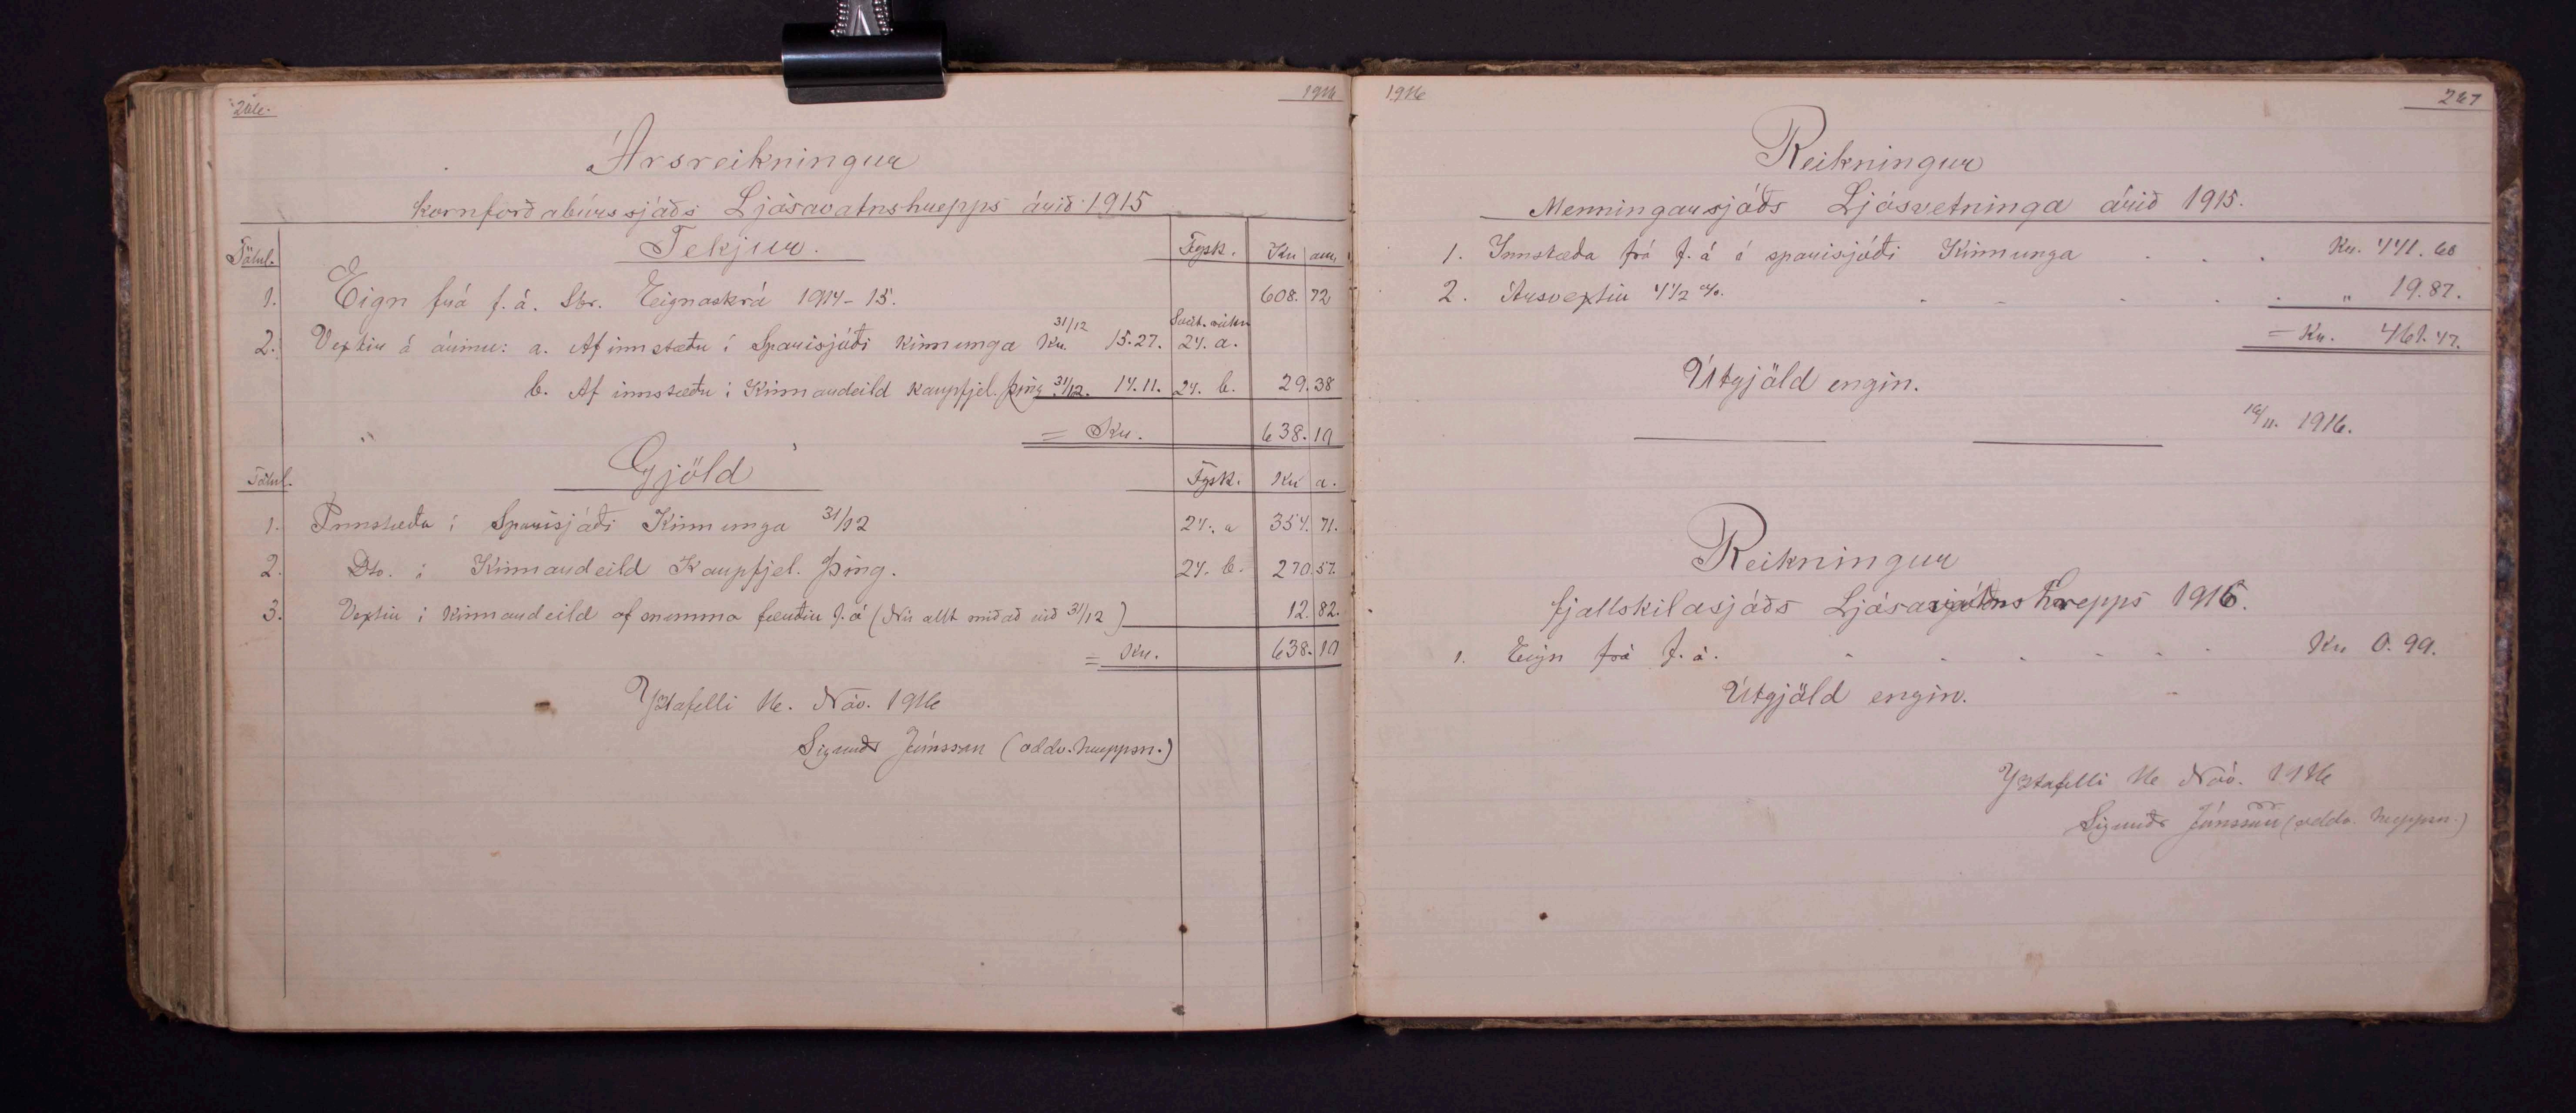 266. 1916
Ársreikningur
kornforðabúrssjóðs Ljósavatnshrepps árið 1915
Tölul. Tekjur. Fygsk. Kr aur.
1. Eign frá f. á. Sbr. Eignaskrá 1914-15. 608. 72
2. Vextir á árinu: a. Af innstæðu í Sparisjóði Kinnunga 31/12 Kr. 15.27. 24. a.
b. Af innstæðu í Kinnardeild Kaupfjel. Þing. 31/12. 14.11. 24. b. 29.38
= Kr. 638.10
Tölul. Gjöld Fygsk. Kr a.
1. Innstæða í Sparisjóði Kinnunga 31/12 24. a 354. 71.
2. Do. í Kinnardeild Kaupfjel. Þing. 24. b. 270.57.
3. Vextir í Kinnardeild af summa færðir f. á (Nú allt miðað við 31/12) 12.82.
= Kr. 638.10
Ystafelli 16. Nóv. 1916
Sigurðr Jónsson (oddv. hreppsn.)
1916 267
Reikningur
Menningarsjóðs Ljósvetninga árið 1915.
1. Innstæða frá f. á í sparisjóði Kinnunga . . . Kr. 441. 60
2. Ársvextir 4 1/2 %. . . . . . . " 19.87.
= Kr. 461.47.
Útgjöld engin.
16/11. 1916.
Reikningur
fjallskilasjóðs Ljósavatnshrepps 1916.
1. Eign frá f. á. . . . . . . Kr 0.99.
Útgjöld engin.
Ystafelli 16 Nóv. 1916
Sigurðr Jónsson (oddv. hreppsn.)